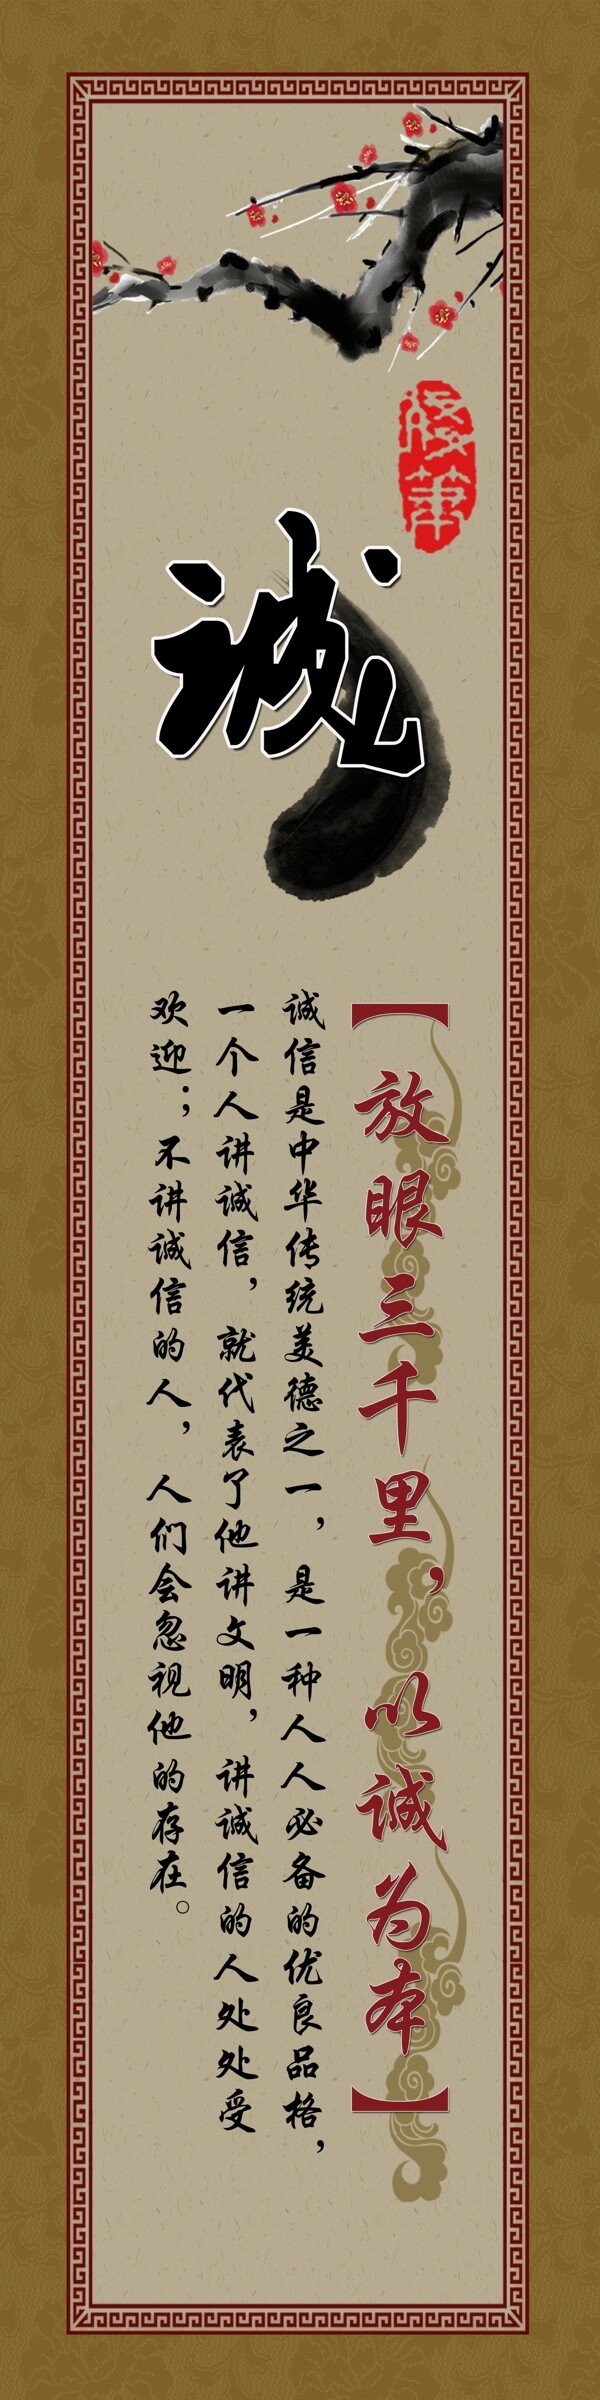 诚
【放眼三千里，以诚为本】
诚信是中华传统美德之一，是一种人人必备的优良品格，
一个人讲诚信，就代表了他讲文明，讲诚信的人处处受
欢迎；不讲诚信的人，人们会忽视他的存在。